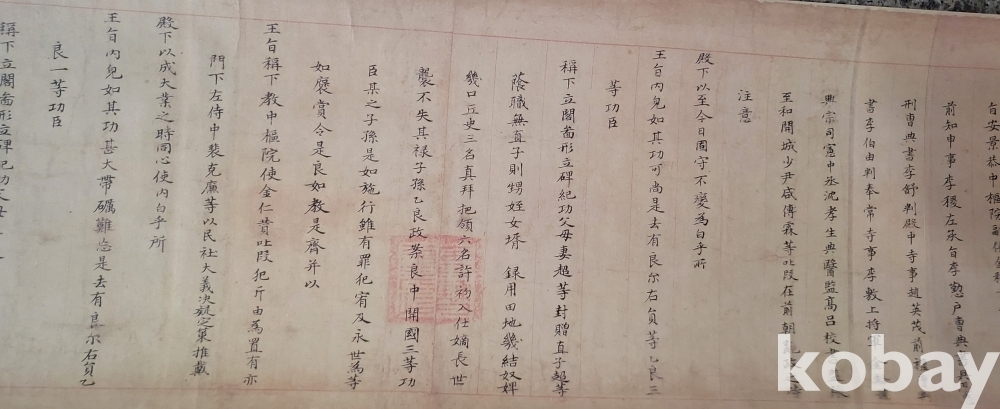 旨安景恭中樞院副使金
前知申事李稷左承旨李懃戶曹典書
刑曹典書李舒判殿中寺事趙英茂前
書李伯由判奉常寺事李敷上將軍
典宗司憲中丞沈孝生典醫監高呂校
至和開城少尹咸傅霖等叱段在前朝
注意
殿下以至今日固守不變爲白乎所
王旨內皃如其功可尚是去有良尔右員等乙良三
等功臣
稱下立閣畵形立碑紀功父母妻超等封贈直子超等
蔭職無直子則甥姪女壻 錄用田地幾結奴婢
幾口丘史三名真拜把領六名許初入仕嫡長世
襲不失其祿子孫乙良政案良中開國三等功
臣某之子孫是如施行雖有罪犯宥及永世爲等
如褒賞令是良如教是齊并以
王旨稱下教中樞院使金仁賛叱段犯斤由爲置有亦
門下左侍中裴克廉等以民社大義決疑定策推戴
殿下以成大業之時同心使內白乎所
王旨內皃如其功甚大帶礪難忘是去有良尔右員乙
良一等功臣
稱下立閣畵形立碑紀功父母
kobay